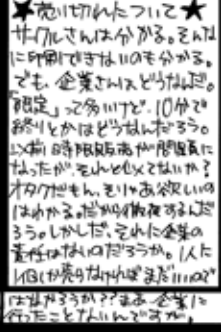 ★売り切れについて★
サークルさんは分かる。そんな
に印刷できないのも分かる。
でも、企業さんはどうなんだ。
「限定」って多いけど、10分で
終りとかはどうなんだろう。
以前時限販売が問題に
なったが、それと同じくないか？
オタクだもん、そりゃあ欲しいの
はわかる。だから徹夜するんだ
ろう。しかしだ、それに企業の
責任はないのだろうか。1人に
1個しか売らなければまだいいので
はなかろうか??まあ、企業に
行ったことないんですが。